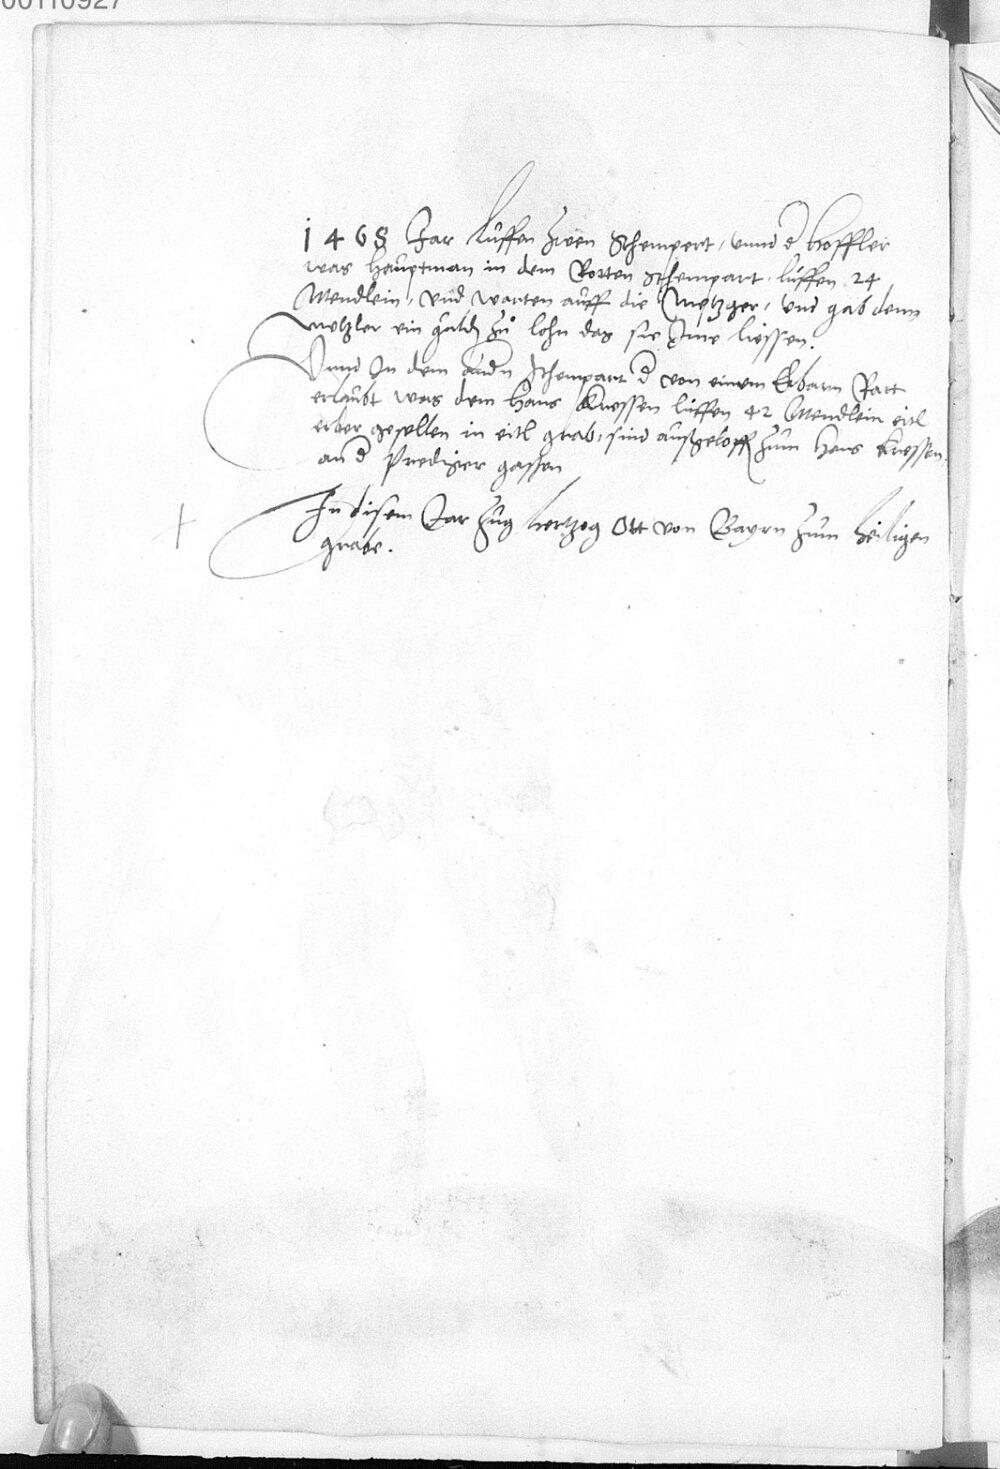 00110927
1468 Jar luffen zwen Schempert, vnnd d Loeffler
was Hauptman in dem Rotten Schempart luffen 24
Mendlein, vnd warten auff die Metzger, vnd gab denn
metzler ein guld zu lohn das sie Ine liessen.
Vnnd In dem andn Schempart d von einem Erbarn Ratt
erlaubt was dem Hans Kressen luffen 42 Mendlein eitl
erber gesellen in eitl grab, sind außgeloff zum Hans Kressen
an d Prediger gassen
In disem Jar zug hertzog Ott von Bayrn zum heiligen
grabe.